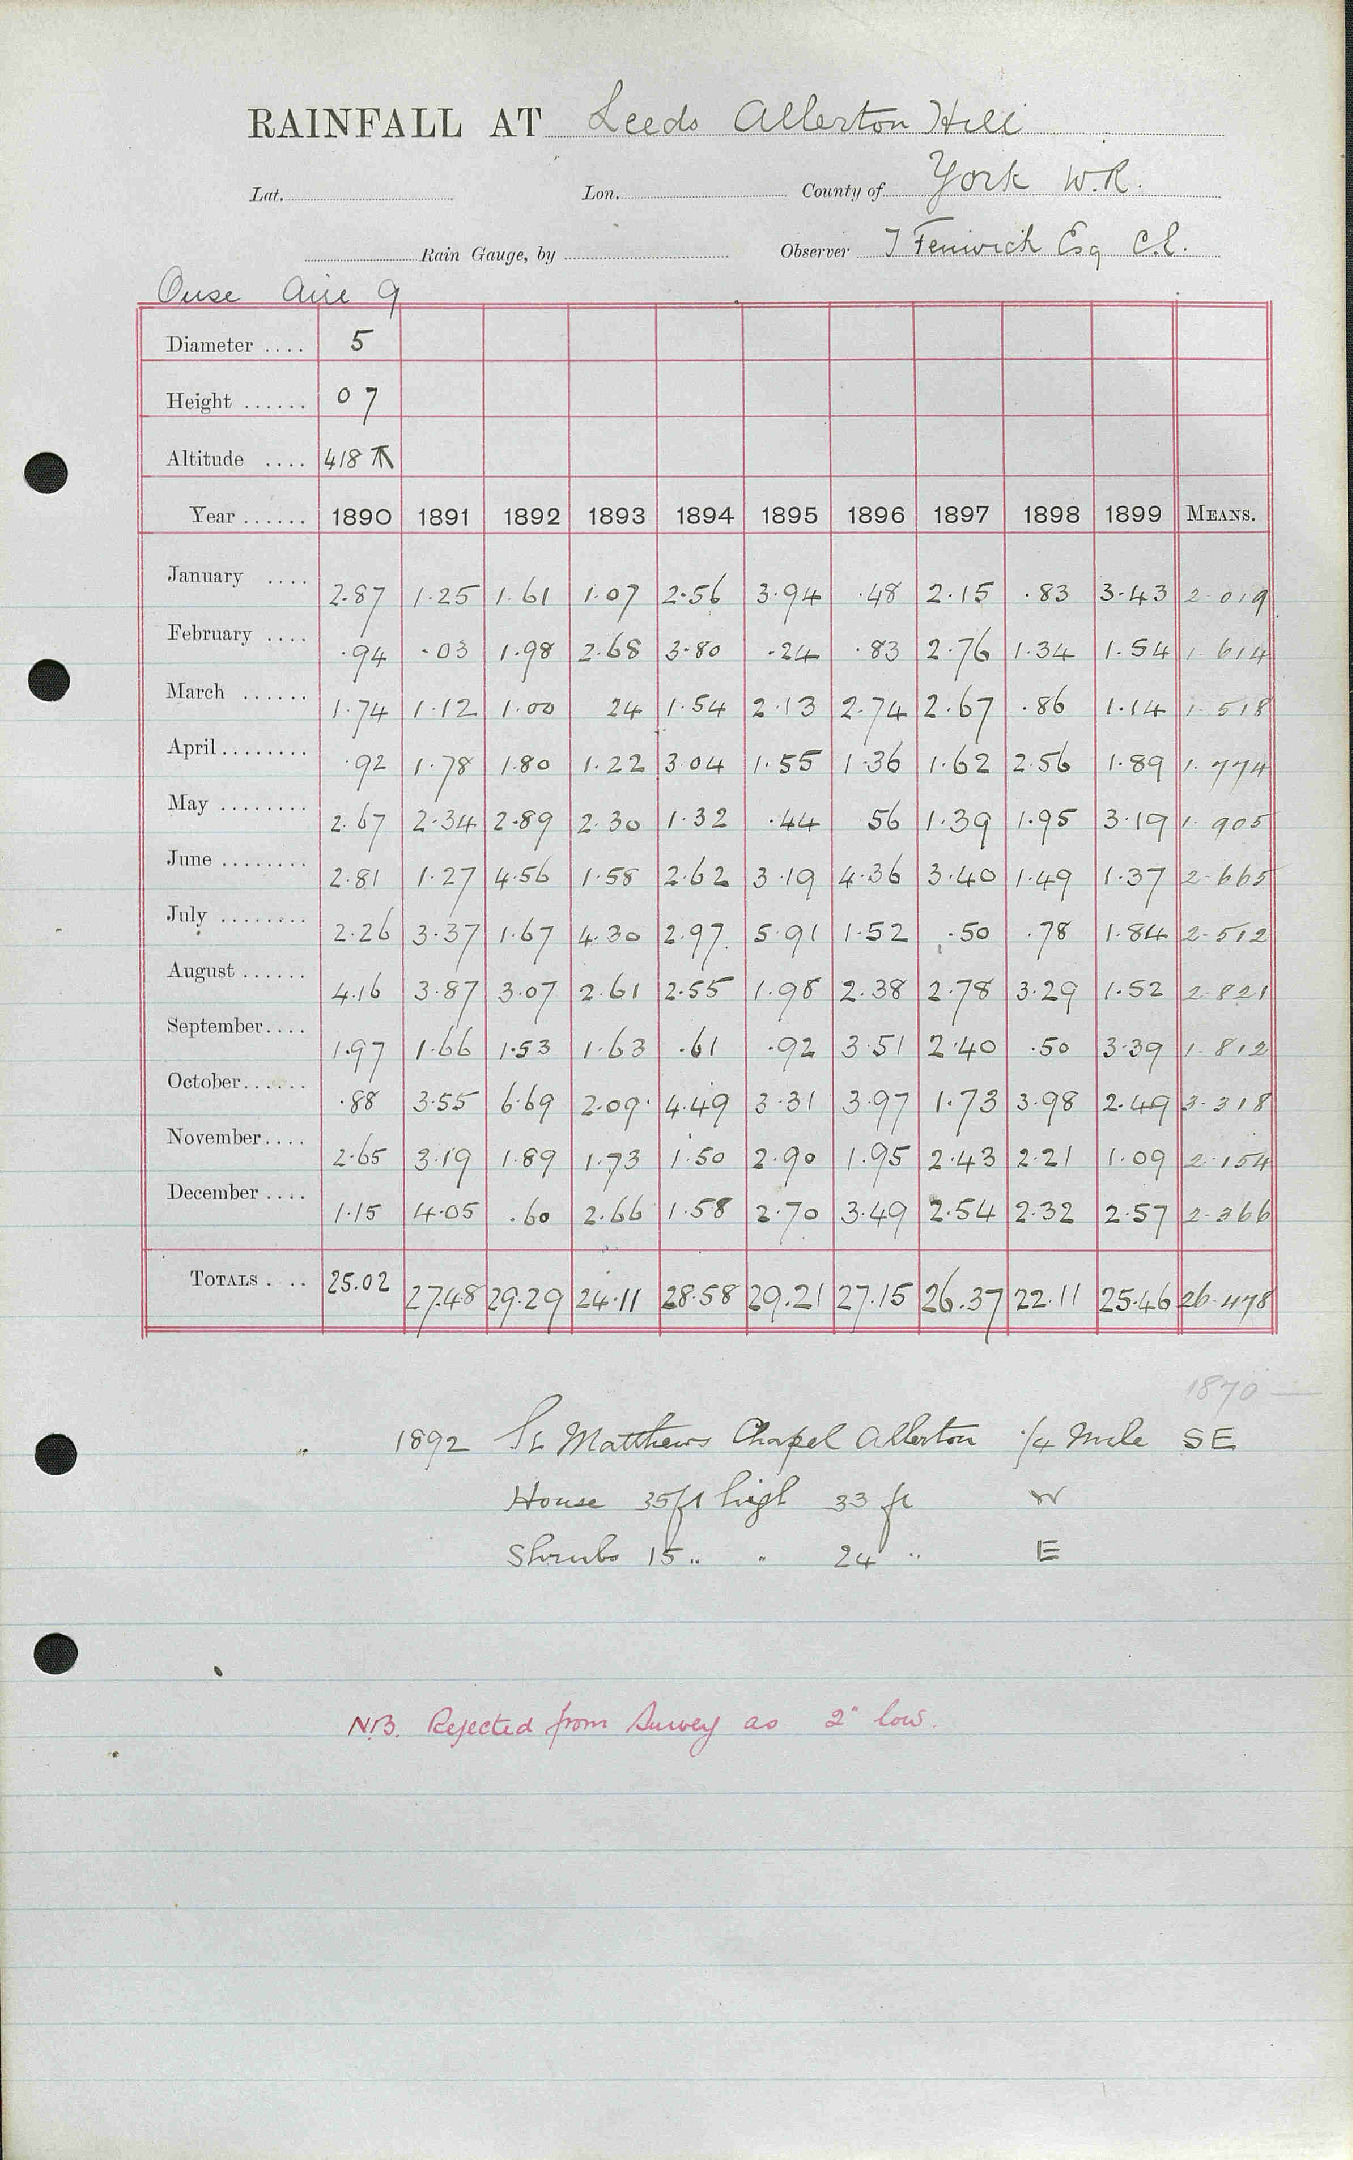 RAINFALL AT Leeds Allerton Hill
Lat. Lon. County of York W.R.
Rain Gauge, by Observer T Fenwick Esq C.E.
Ouse Aire 9
Diameter .... 5
Height ...... 0 7
Altitude .... 418 T
Year ...... 1890 1891 1892 1893 1894 1895 1896 1897 1898 1899 MEANS.
January .... 2.87 1.25 1.61 1.07 2.56 3.94 .48 2.15 .83 3.43 2.019
February .... .94 .03 1.98 2.68 3.80 .24 .83 2.76 1.34 1.54 1.614
March ...... 1.74 1.12 1.00 24 1.54 2.13 2.74 2.67 .86 1.14 1.518
April ........ .92 1.78 1.80 1.22 3.04 1.55 1.36 1.62 2.56 1.89 1.774
May ........ 2.67 2.34 2.89 2.30 1.32 .44 56 1.39 1.95 3.19 1.905
June ........ 2.81 1.27 4.56 1.58 2.62 3.19 4.36 3.40 1.49 1.37 2.665
July ........ 2.26 3.37 1.67 4.30 2.97 5.91 1.52 .50 .78 1.84 2.512
August ...... 4.16 3.87 3.07 2.61 2.55 1.98 2.38 2.78 3.29 1.52 2.821
September .... 1.97 1.66 1.53 1.63 .61 .92 3.51 2.40 .50 3.39 1.812
October ...... .88 3.55 6.69 2.09 4.49 3.31 3.97 1.73 3.98 2.49 3.318
November .... 2.65 3.19 1.89 1.73 1.50 2.90 1.95 2.43 2.21 1.09 2.154
December .... 1.15 4.05 .60 2.66 1.58 2.70 3.49 2.54 2.32 2.57 2.366
TOTALS . .. 25.02 27.48 29.29 24.11 28.58 29.21 27.15 26.37 22.11 25.46 26.478
1870 —
1892 St Matthews Chapel Allerton 1/4 Mile SE
House 35 ft high 33 ft W
Shrubs 15 „ „ 24 „ E
N.B. Rejected from Survey as 2" low.